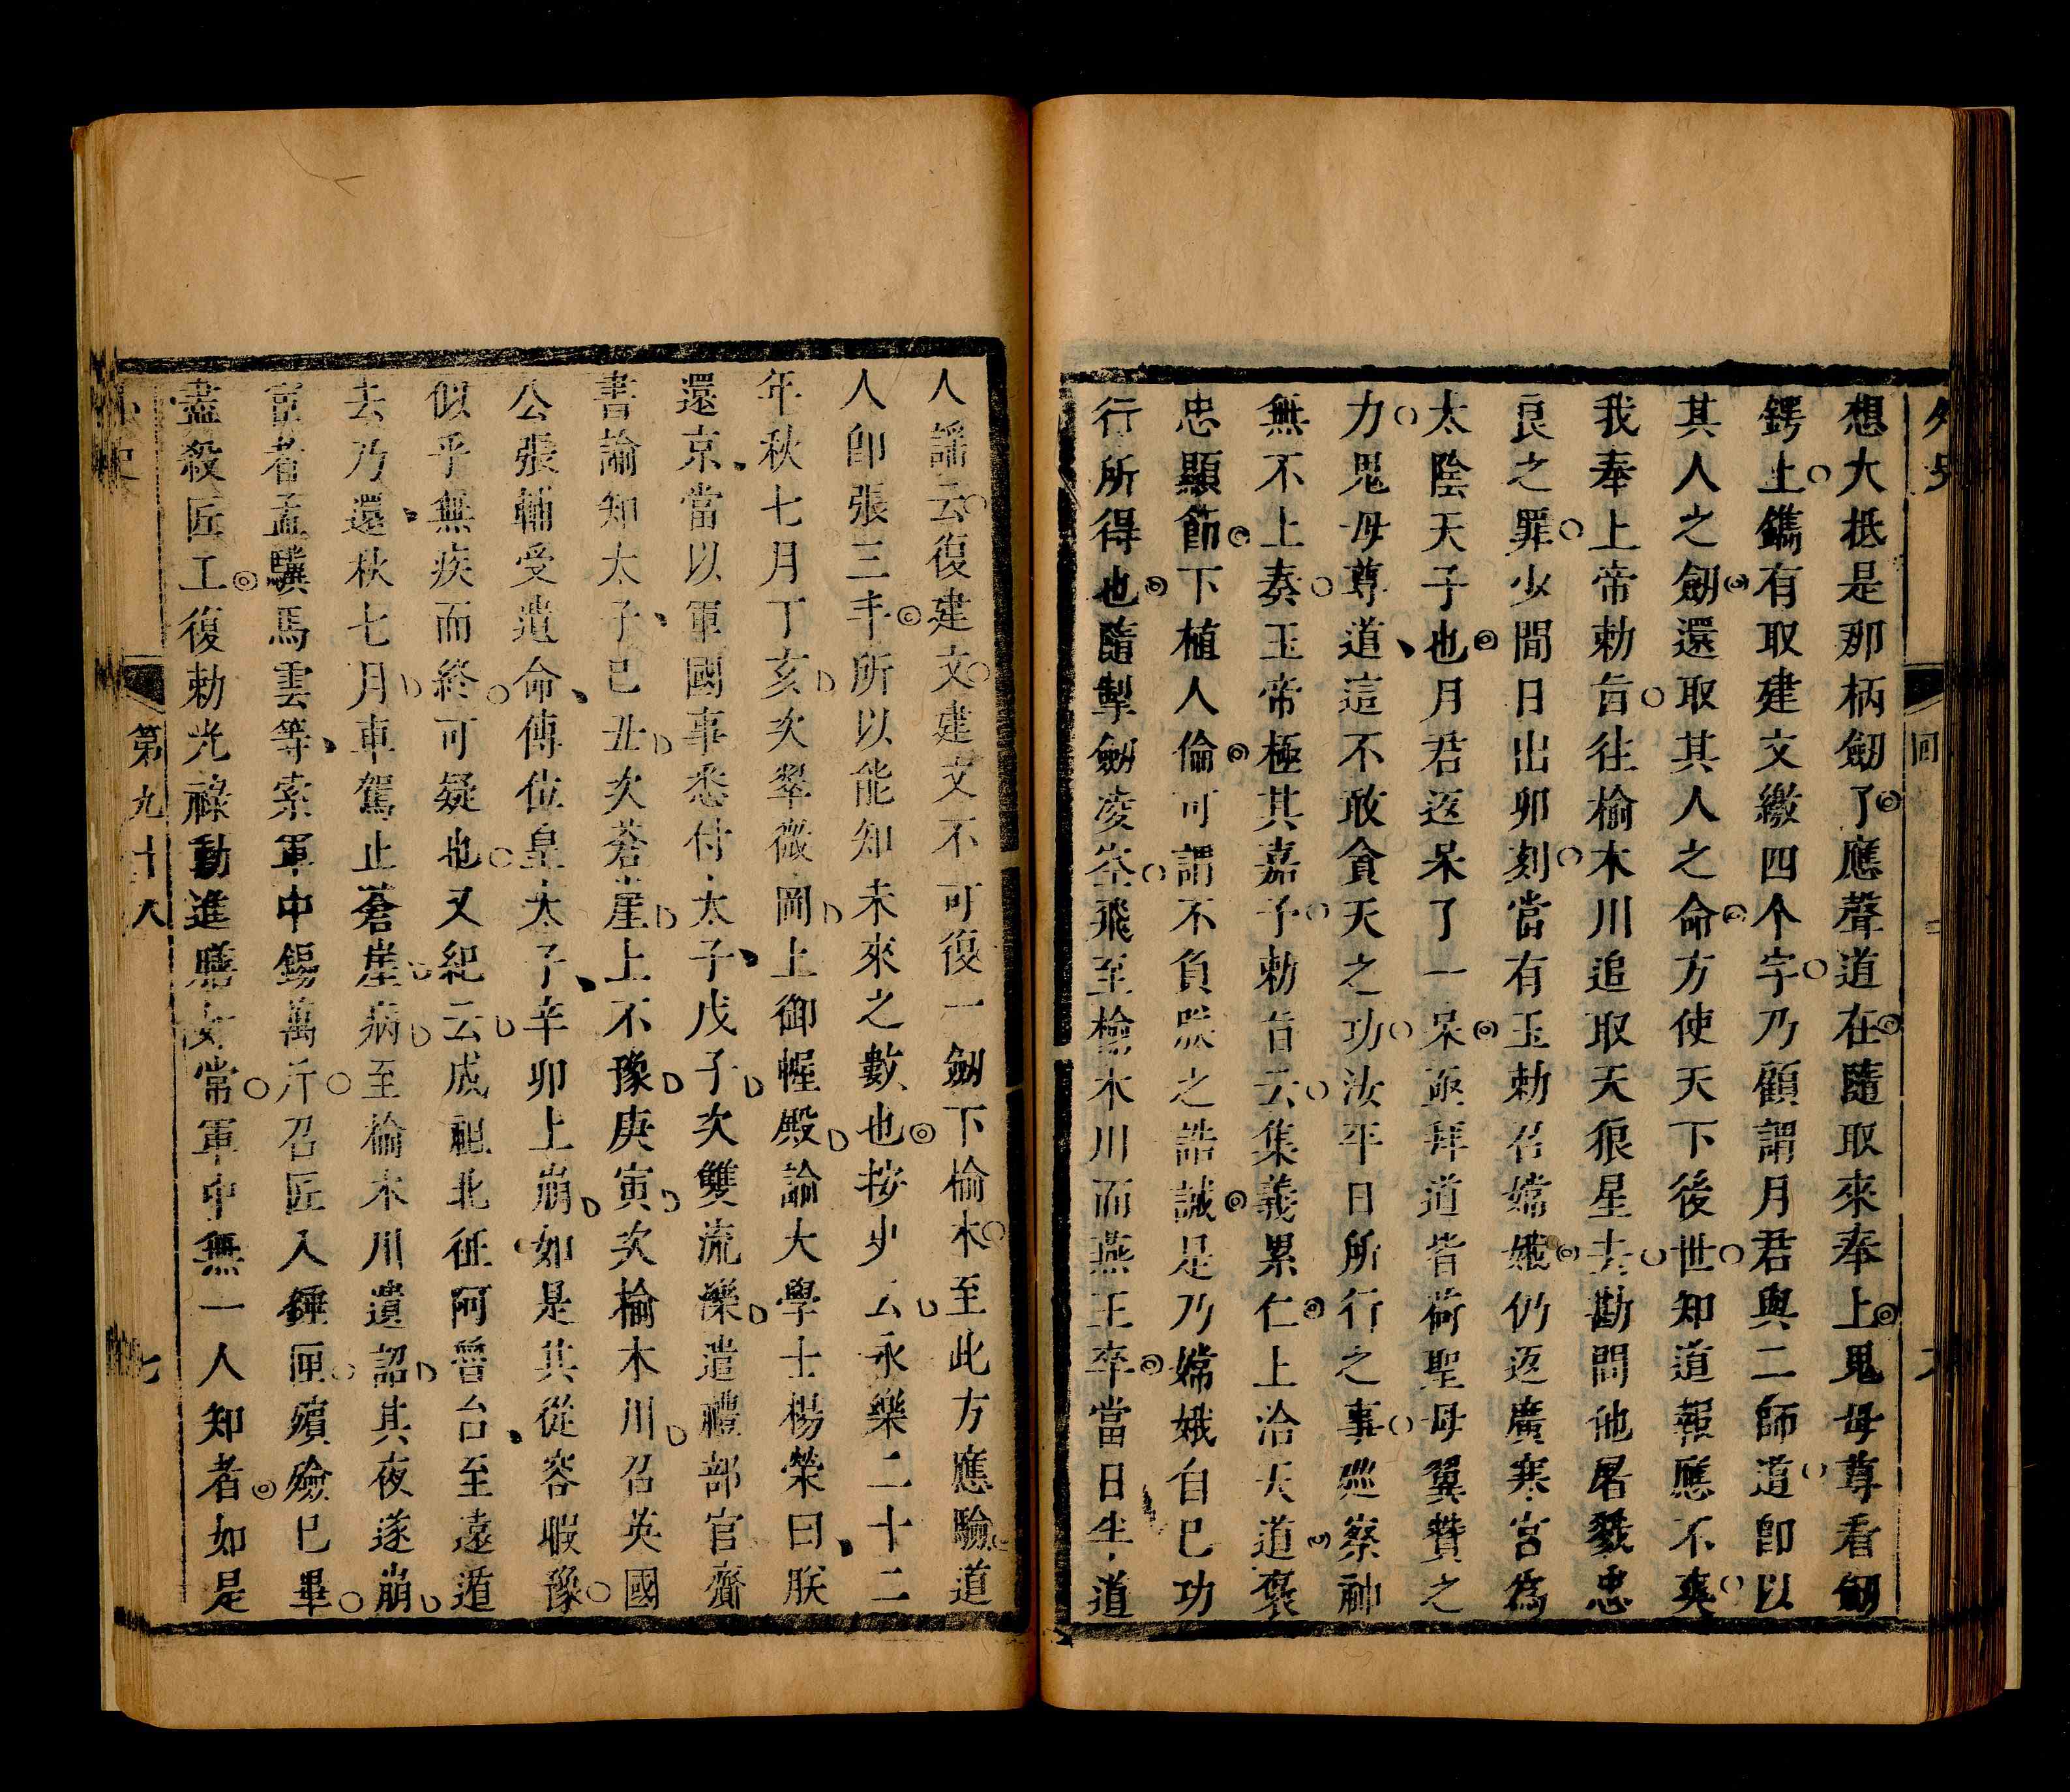 外史
回
想大抵是那柄劒了應聲道在隨取來奉上鬼母尊看劒
鍔上鐫有取建文繳四个字乃顧謂月君與二師道卽以
其人之劒還取其人之命方使天下後世知道報應不爽
我奉上帝勅旨往榆木川追取天狼星去勘問他屠戮忠
良之罪少間日出卯刻當有玉勅召嫦娥仍返廣寒宮爲
太陰天子也月君返呆了一呆亟拜道皆荷聖母翼贊之
力鬼母尊道這不敢貪天之功汝平日所行之事廵察神
無不上奏玉帝極其嘉予勅旨云集義累仁上洽天道褒
忠顯節下植人倫可謂不負朕之誥誡是乃嫦娥自巳功
行所得也隨掣劒凌空飛至榆木川而燕王卒當日生道
人謡云復建文建文不可復一劒下榆木至此方應驗道
人卽張三丰所以能知未來之數也按史云永樂二十二
年秋七月丁亥次翠微岡上御幄殿諭大學士楊榮曰朕
還京當以軍國事悉付太子戊子次雙流濼遣禮部官齎
書諭知太子巳丑次蒼崖上不豫庚寅次榆木川召英國
公張輔受遺命傳位皇太子辛卯上崩如是其從容暇豫
似乎無疾而終可疑也又紀云成祖北征阿魯台至遠遁
去乃還秋七月車駕止蒼崖病至榆木川遺詔其夜遂崩
宦者孟驥馬雲等索軍中錫萬斤召匠入錘匣殯殮巳畢
盡殺匠工復勅光祿動進膳如常軍中無一人知者如是
第九十八
七